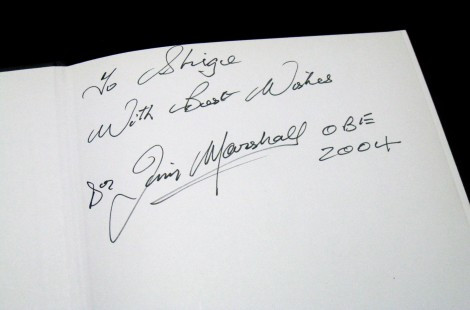 To
With Best Wishes
Dr Jim Marshall OBE
2004